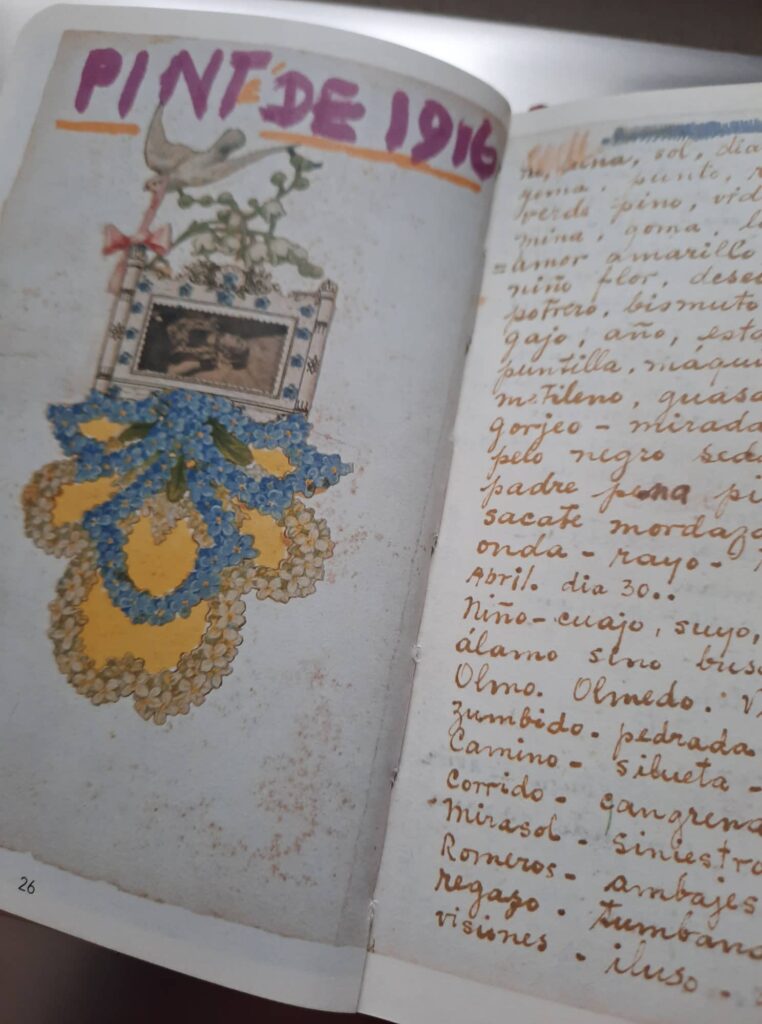 PINTÉ DE 1916
26
luna, sol, dia
goma, punto,
verde pino, vid
mina, goma, l
= amor amarillo
niño flor, dese
potrero, bismuto
gajo, año, esta
puntilla, máqui
metileno, guasa
gorjeo - mirada
pelo negro seda
padre pena pi
sacate mordaza
onda - rayo -
Abril. dia 30..
Niño - cuajo, suyo,
álamo sino busc
Olmo. Olmedo. V
Zumbido - pedrada
Camino - silueta -
Corrido - cangrena
Mirasol - siniestro
Romeros - ambajes
regazo. tumband
visiones - iluso -